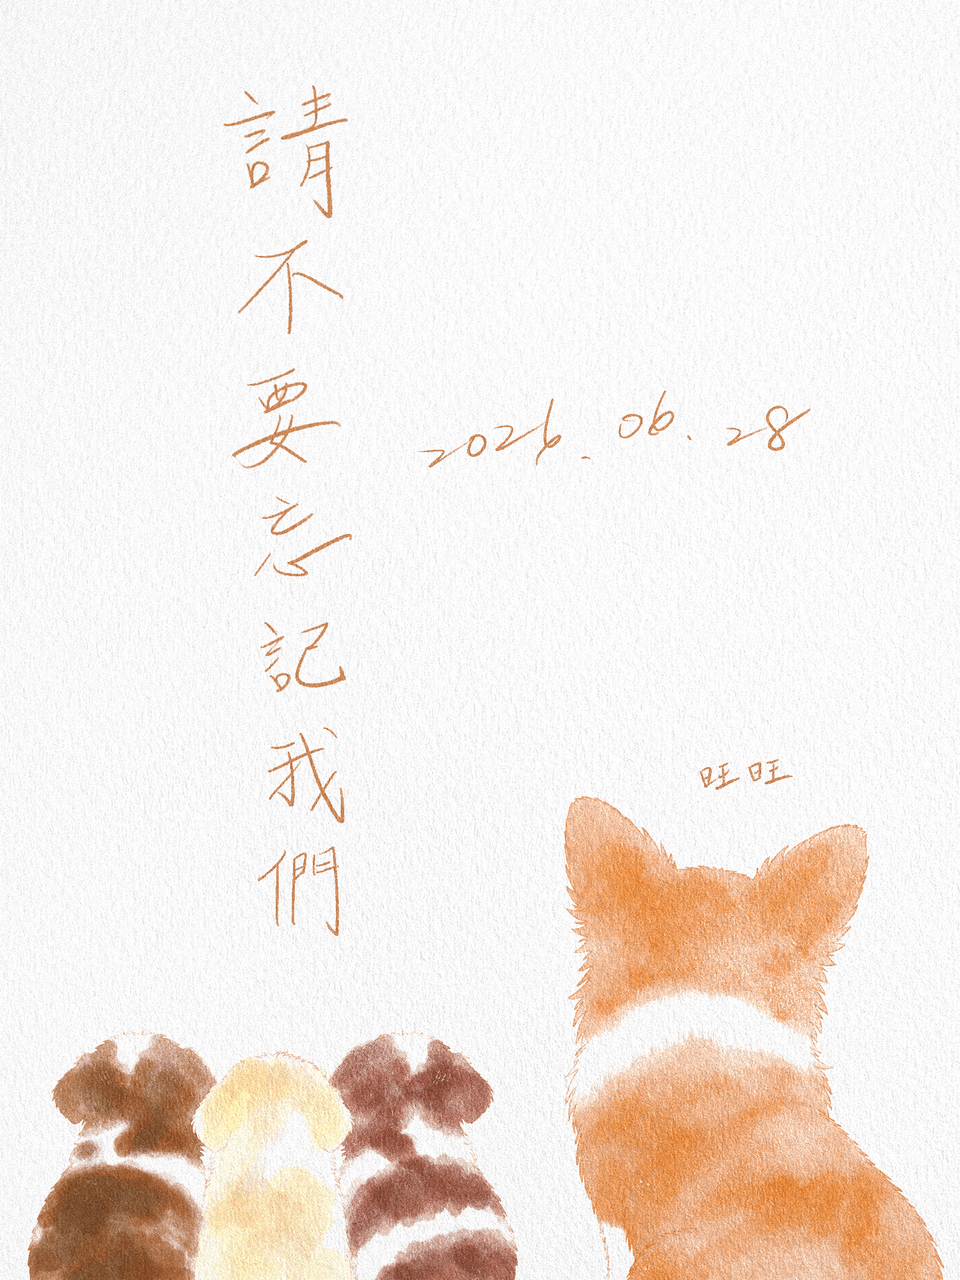 請不要忘記我們
2026.06.28
旺旺